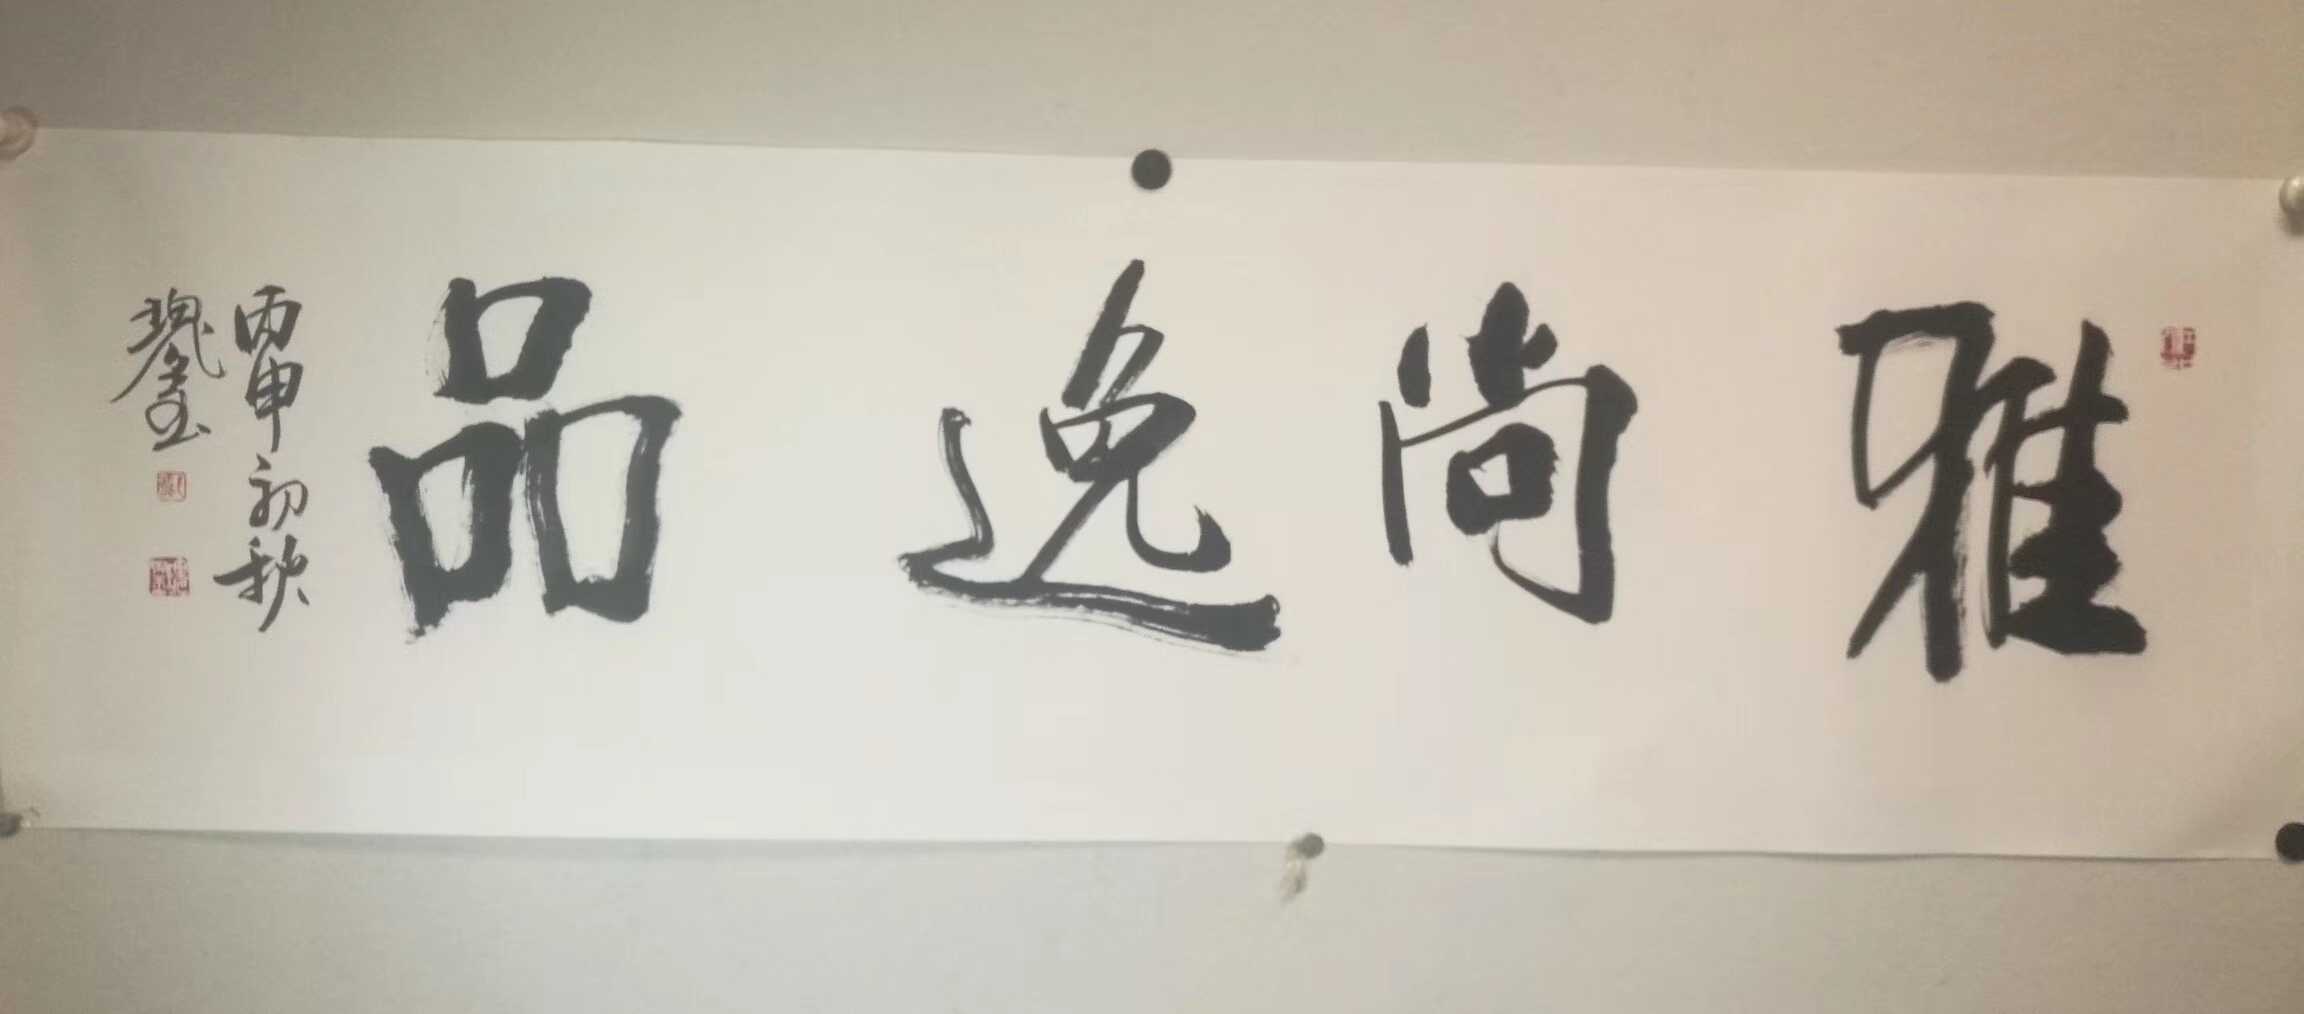 雅尚逸品
丙申初秋